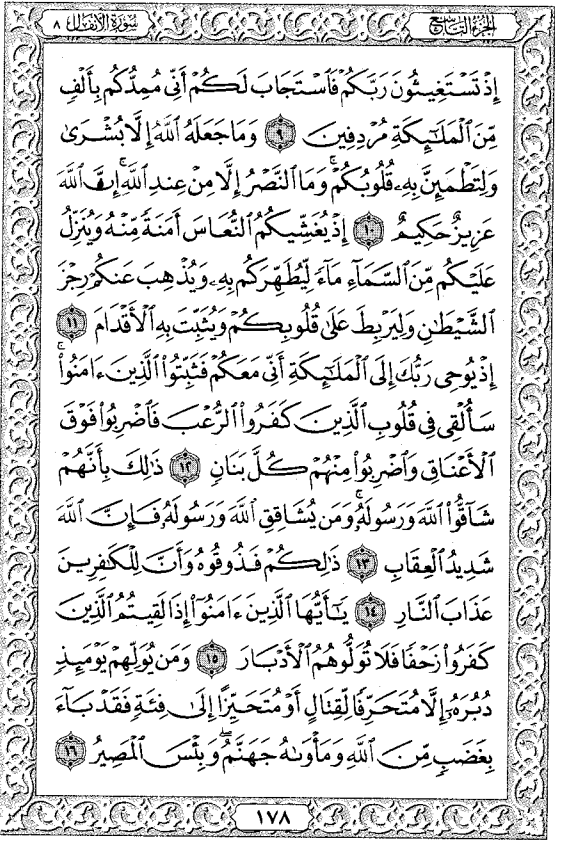 الجزء التاسع
سورة الأنفال ٨
إِذْ تَسْتَغِيثُونَ رَبَّكُمْ فَٱسْتَجَابَ لَكُمْ أَنِّى مُمِدُّكُم بِأَلْفٍ
مِّنَ ٱلْمَلَٰٓئِكَةِ مُرْدِفِينَ ٩ وَمَا جَعَلَهُ ٱللَّهُ إِلَّا بُشْرَىٰ
وَلِتَطْمَئِنَّ بِهِۦ قُلُوبُكُمْ ۚ وَمَا ٱلنَّصْرُ إِلَّا مِنْ عِندِ ٱللَّهِ ۚ إِنَّ ٱللَّهَ
عَزِيزٌ حَكِيمٌ ١٠ إِذْ يُغَشِّيكُمُ ٱلنُّعَاسَ أَمَنَةً مِّنْهُ وَيُنَزِّلُ
عَلَيْكُم مِّنَ ٱلسَّمَآءِ مَآءً لِّيُطَهِّرَكُم بِهِۦ وَيُذْهِبَ عَنكُمْ رِجْزَ
ٱلشَّيْطَٰنِ وَلِيَرْبِطَ عَلَىٰ قُلُوبِكُمْ وَيُثَبِّتَ بِهِ ٱلْأَقْدَامَ ١١
إِذْ يُوحِى رَبُّكَ إِلَى ٱلْمَلَٰٓئِكَةِ أَنِّى مَعَكُمْ فَثَبِّتُوا۟ ٱلَّذِينَ ءَامَنُوا۟ ۚ
سَأُلْقِى فِى قُلُوبِ ٱلَّذِينَ كَفَرُوا۟ ٱلرُّعْبَ فَٱضْرِبُوا۟ فَوْقَ
ٱلْأَعْنَاقِ وَٱضْرِبُوا۟ مِنْهُمْ كُلَّ بَنَانٍ ١٢ ذَٰلِكَ بِأَنَّهُمْ
شَآقُّوا۟ ٱللَّهَ وَرَسُولَهُۥ ۚ وَمَن يُشَاقِقِ ٱللَّهَ وَرَسُولَهُۥ فَإِنَّ ٱللَّهَ
شَدِيدُ ٱلْعِقَابِ ١٣ ذَٰلِكُمْ فَذُوقُوهُ وَأَنَّ لِلْكَٰفِرِينَ
عَذَابَ ٱلنَّارِ ١٤ يَٰٓأَيُّهَا ٱلَّذِينَ ءَامَنُوٓا۟ إِذَا لَقِيتُمُ ٱلَّذِينَ
كَفَرُوا۟ زَحْفًا فَلَا تُوَلُّوهُمُ ٱلْأَدْبَارَ ١٥ وَمَن يُوَلِّهِمْ يَوْمَئِذٍ
دُبُرَهُۥٓ إِلَّا مُتَحَرِّفًا لِّقِتَالٍ أَوْ مُتَحَيِّزًا إِلَىٰ فِئَةٍ فَقَدْ بَآءَ
بِغَضَبٍ مِّنَ ٱللَّهِ وَمَأْوَىٰهُ جَهَنَّمُ ۖ وَبِئْسَ ٱلْمَصِيرُ ١٦
١٧٨